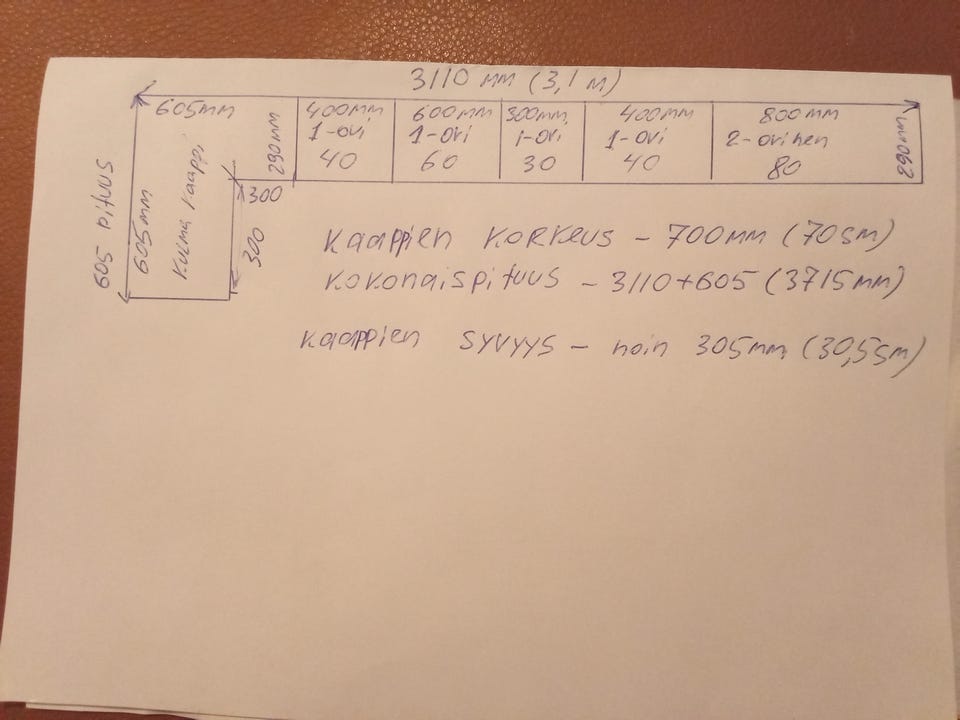 3110 mm (3,1 m)
605mm
400mm
1-ovi
40
600mm
1-ovi
60
300mm
1-ovi
30
400mm
1-ovi
40
800mm
2-ovinen
80
290mm
290mm
605 pituus
605mm
Kulma kaappi
300
300
Kaappien korkeus - 700mm (70sm)
kokonaispituus - 3110+605 (3715mm)
kaappien syvyys - noin 305mm (30,5sm)